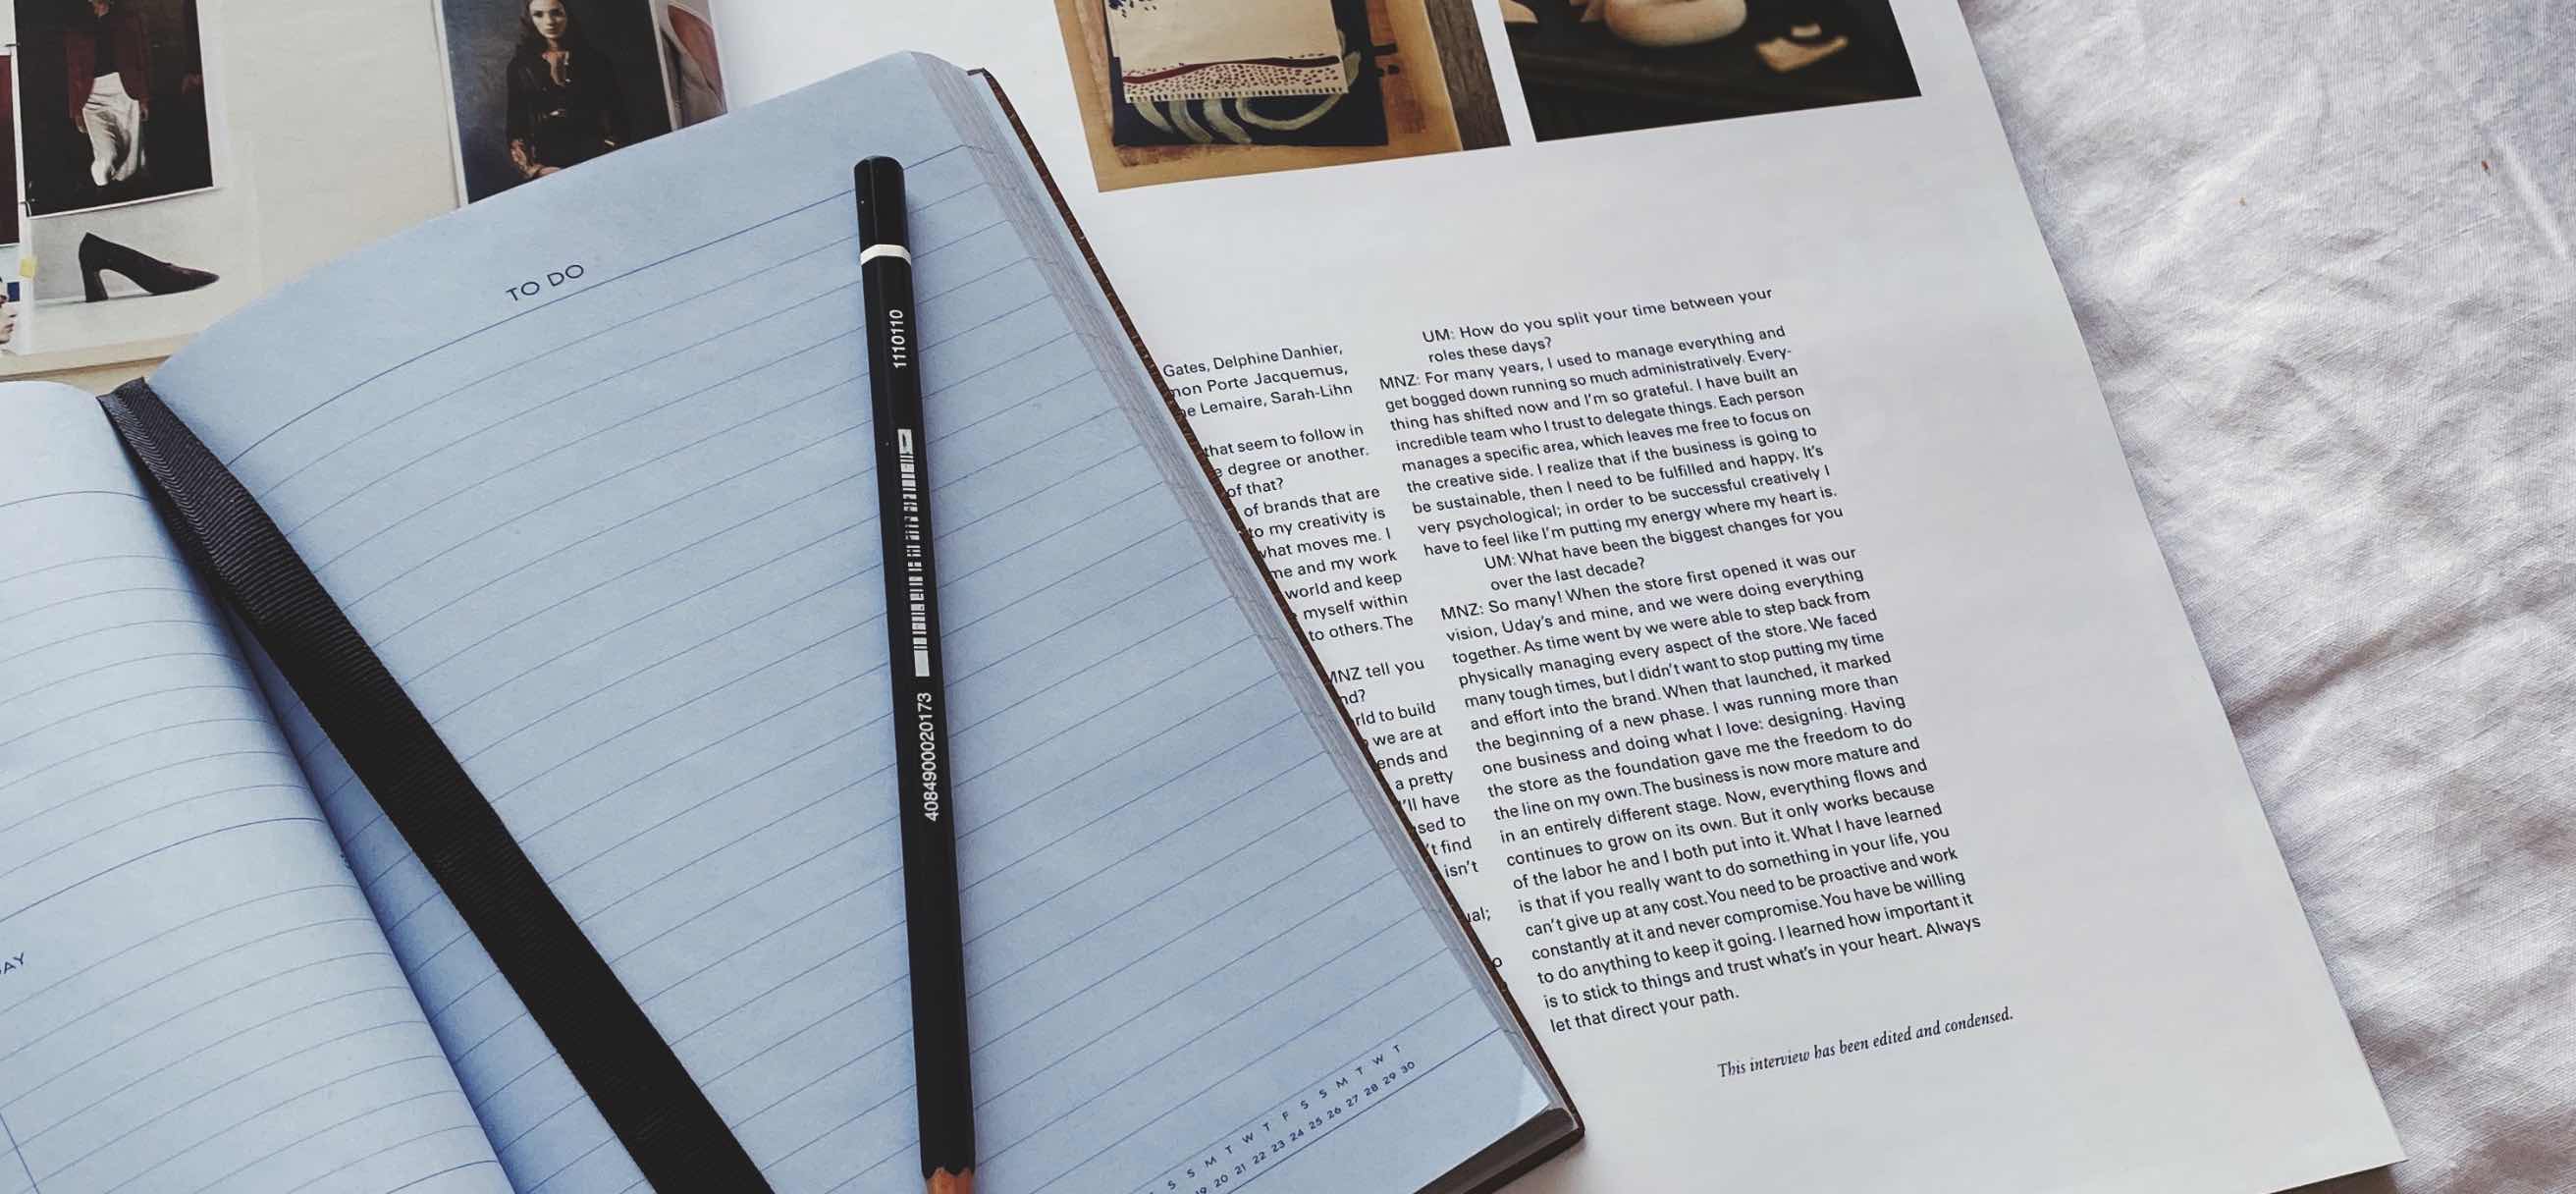 TO DO
AY
1110110
4084900020173
S S M T W T F S S M T W T
20 21 22 23 24 25 26 27 28 29 30
Gates, Delphine Danhier,
Porte Jacquemus,
Lemaire, Sarah-Lihn
that seem to follow in
degree or another.
of that?
of brands that are
to my creativity is
what moves me. I
me and my work
world and keep
myself within
to others. The
MNZ tell you
to build
we are at
and
a pretty
I'll have
to
find
isn't
UM: How do you split your time between your
roles these days?
MNZ: For many years, I used to manage everything and
get bogged down running so much administratively. Every-
thing has shifted now and I'm so grateful. I have built an
incredible team who I trust to delegate things. Each person
manages a specific area, which leaves me free to focus on
the creative side. I realize that if the business is going to
be sustainable, then I need to be fulfilled and happy. It's
very psychological; in order to be successful creatively I
have to feel like I'm putting my energy where my heart is.
UM: What have been the biggest changes for you
over the last decade?
MNZ: So many! When the store first opened it was our
vision, Uday's and mine, and we were doing everything
together. As time went by we were able to step back from
physically managing every aspect of the store. We faced
many tough times, but I didn't want to stop putting my time
and effort into the brand. When that launched, it marked
the beginning of a new phase. I was running more than
one business and doing what I love: designing. Having
the store as the foundation gave me the freedom to do
the line on my own. The business is now more mature and
in an entirely different stage. Now, everything flows and
continues to grow on its own. But it only works because
of the labor he and I both put into it. What I have learned
is that if you really want to do something in your life, you
can't give up at any cost. You need to be proactive and work
constantly at it and never compromise. You have be willing
to do anything to keep it going. I learned how important it
is to stick to things and trust what's in your heart. Always
let that direct your path.
This interview has been edited and condensed.